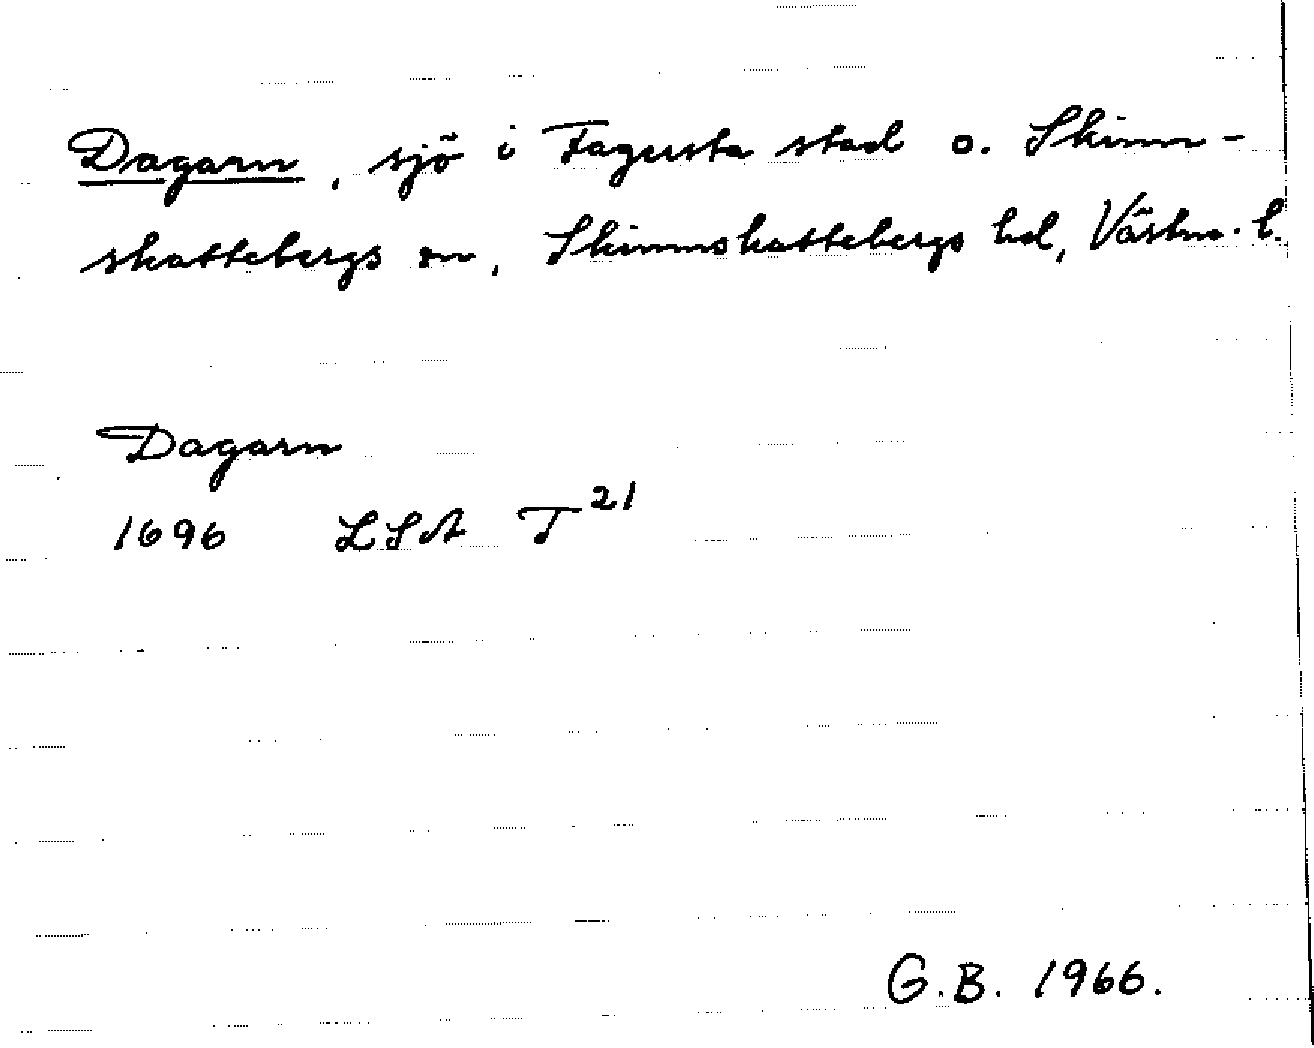 Dagarn, sjö i Fagersta stad o. Skinn-
skattebergs sn, Skinnskattebergs hd, Västm. l.
Dagarn
1696 LSA T 21
G.B. 1966.